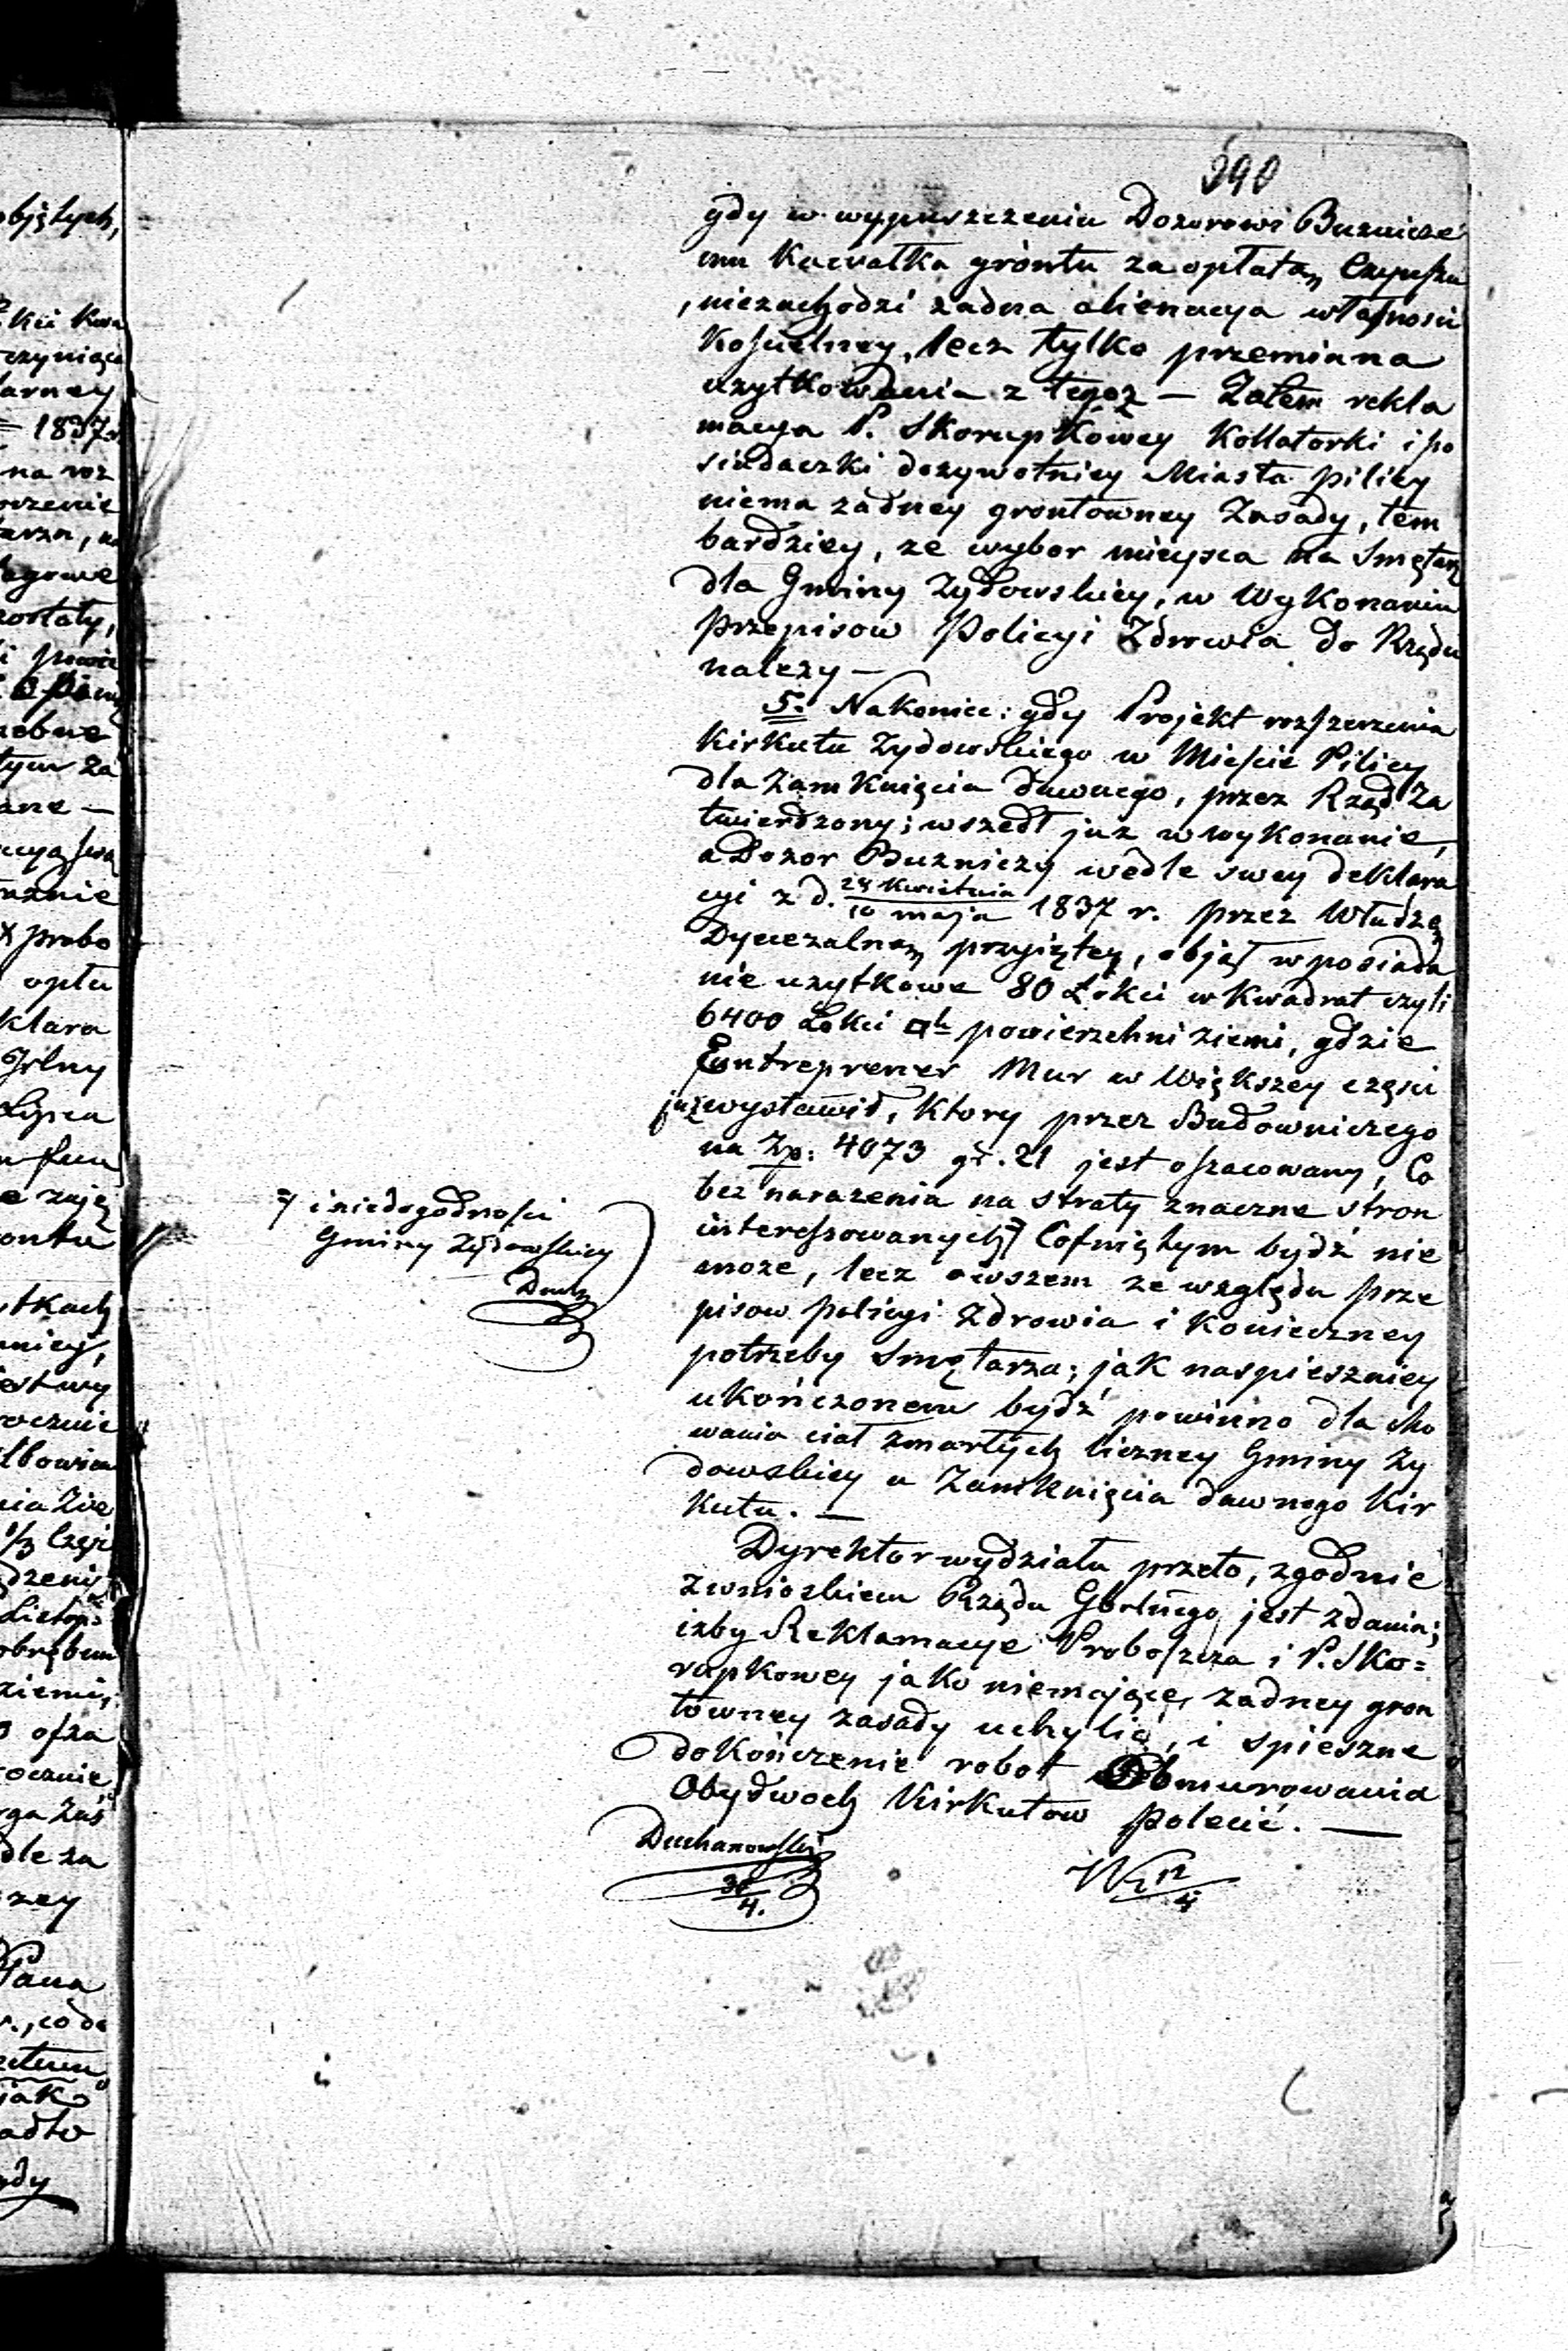 390
gdy w wypuszczeniu Dozorowi Buznicze
mu Kawałka gróntu za opłatą Czynszu
, niezachodzi zadna alienacya własnosci
Koscielney, lecz tylko przemiana
uzytkowania z tegoż — Zatem rekla
macya P. Skorupkowey Kollatorki i po
siadaczki dozywotniey Miasta Pilicy
niema zadney grontowney Zasady, tem
bardziey, ze wybor mieysca na Smętarz
dla Gminy Zydowskiey, w Wykonaniu
Przepisow Policyi Zdrowia do Rządu
nalezy —
5. Nakoniec: gdy Projekt rozszerzenia
Kirkutu Zydowskiego w Mieście Pilicy
dla Zamknięcia dawnego, przez Rząd Za
twierdzony; wszedł juz w wykonanie,
a Dozor Buzniczy wedle swey deklara
cyi z d. 28 Kwietnia / 10 maja 1837 r. przez Władzę
Dyecezalną przyiętey, objął w posiada
nie uzytkowe 80 Łokci w Kwadrat czyli
6400 Łokci □ch powierzchni ziemi, gdzie
Entreprener Mur w Większey części
już wystawił, Ktory przez Budowniczego
na Zp: 4073 gr. 21 jest oszacowany, Co
bez narazenia na straty znaczne stron
interessowanych Cofniętym bydź nie
moze, lecz owszem ze względu prze
pisow policyi Zdrowia i Konieczney
potrzeby Smętarza; jak naspieszniey
ukończonem bydź powinno dla cho
wania ciał zmarłych liczney Gminy Zy
dowskiey a Zamknięcia dawnego Kir
kutu. —
Dyrektor wydziału przeto, zgodnie
z wnioskiem Rządu Gbelnego jest zdania;
izby Reklamacye Proboszcza i P. Sko=
rupkowey jako niemające, zadney gron
towney zasady uchylić, i spieszne
dokończenie robot Obmurowania
Obydwoch Kirkutow polecić. —
Duchanowski
30/4.
12/4
i niedogodności
Gminy Zydowskiey
Duch
objętych,
czyniąca
1837
na roz
X probo
opłu
klara
Lipca
ziemi,
ocznie
Pana
jak